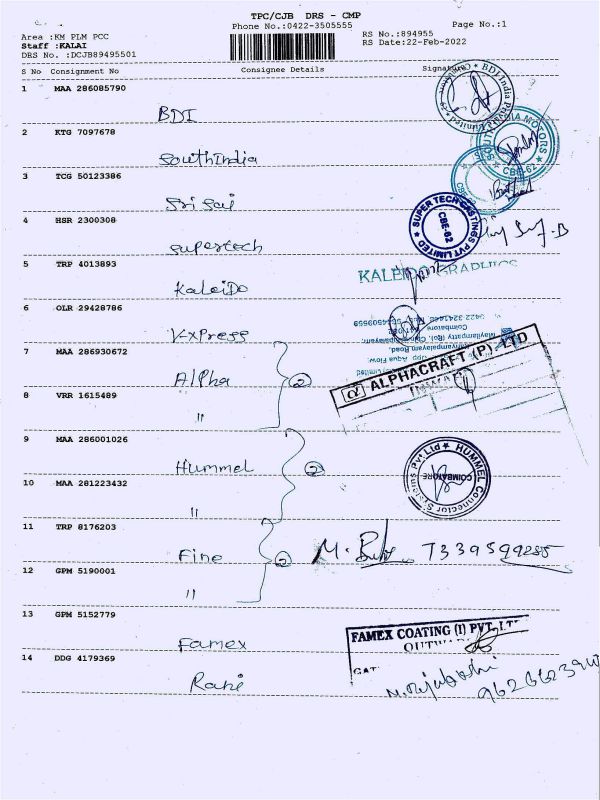 TPC/CJB DRS - CMP
Phone No.:0422-3505555 Page No.:1
Area :KM PLM PCC RS No.:894955
Staff :KALAI RS Date:22-Feb-2022
DRS No. :DCJB89495501
S No Consignment No Consignee Details Signature
1 MAA 286085790
BDI
2 KTG 7097678
SouthIndia
3 TCG 50123386
Sri Sai
4 HSR 2300308
Supertech
SUPER TECH CASTINGS PVT LIMITED
CBE-62
5 TRP 4013893
KALEIDO GRAPHICS
Kaleido
6 OLR 29428786
V-XPress
7 MAA 286930672
Alpha 2
ALPHACRAFT (P) LTD
8 VRR 1615489
"
9 MAA 286001026
Hummel 2
HUMMEL Connector Systems Pvt.Ltd
COIMBATORE
10 MAA 281223432
"
11 TRP 8176203
Fine 2 M.
12 GPM 5190001
"
13 GPM 5152779
Famex
FAMEX COATING (I) PVT. LT
14 DDG 4179369
Rani